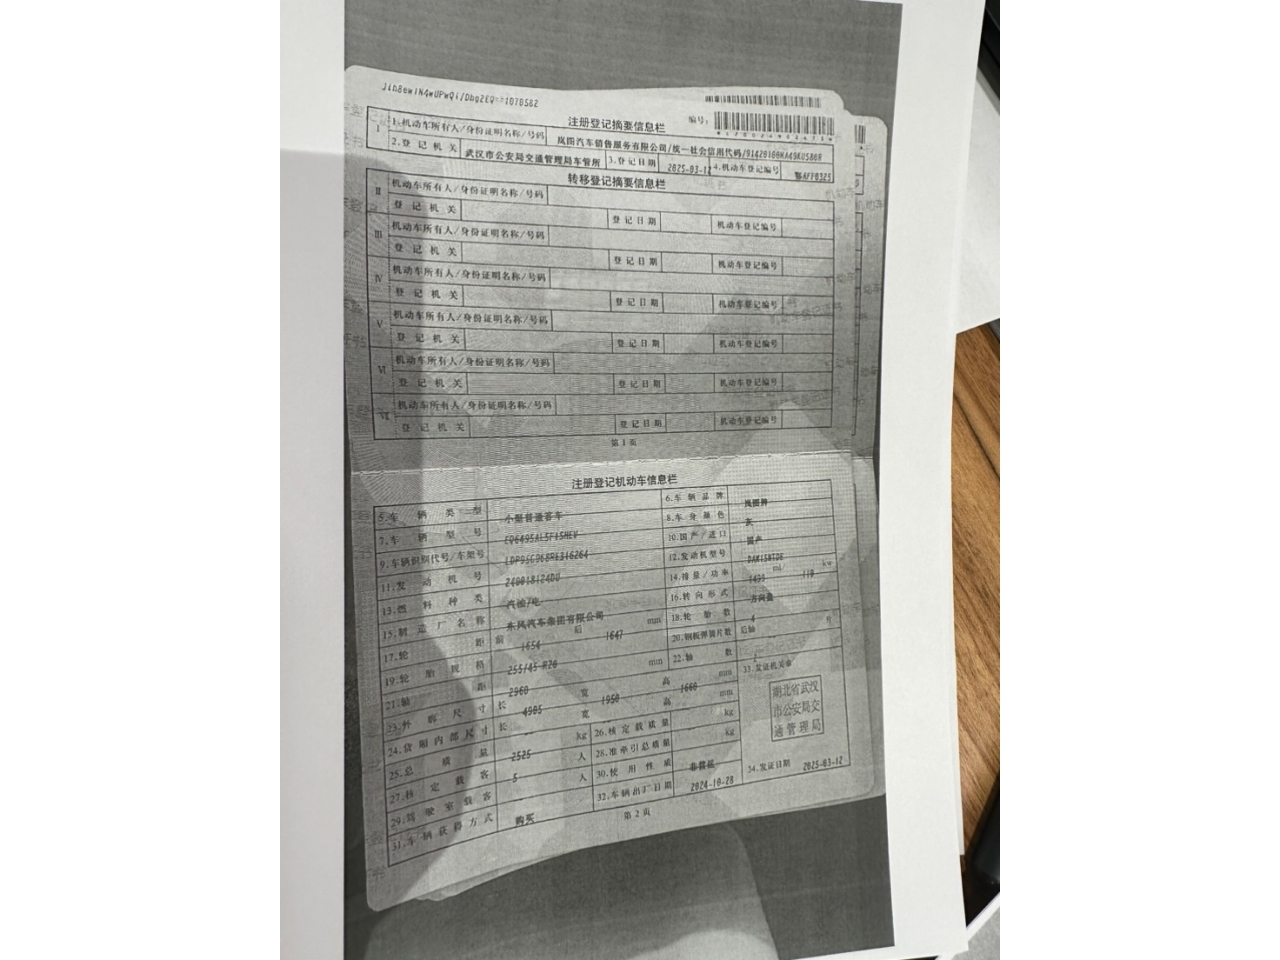 Jih8ewiN4wUPwQi/Dhg2EQ==1070582
注册登记摘要信息栏 编号:
I 1.机动车所有人/身份证明名称/号码 岚图汽车销售服务有限公司/统一社会信用代码/91420100MA49KU500R
2.登记机关 武汉市公安局交通管理局车管所 3.登记日期 2025-03-12 4.机动车登记编号 鄂AFF0325
转移登记摘要信息栏
II 机动车所有人/身份证明名称/号码
登记机关 登记日期 机动车登记编号
III 机动车所有人/身份证明名称/号码
登记机关 登记日期 机动车登记编号
IV 机动车所有人/身份证明名称/号码
登记机关 登记日期 机动车登记编号
V 机动车所有人/身份证明名称/号码
登记机关 登记日期 机动车登记编号
VI 机动车所有人/身份证明名称/号码
登记机关 登记日期 机动车登记编号
VII 机动车所有人/身份证明名称/号码
登记机关 登记日期 机动车登记编号
第1页
注册登记机动车信息栏
5.车辆类型 小型普通客车 6.车辆品牌 岚图牌
7.车辆型号 EQ6495AL5F15HEV 8.车身颜色 灰
9.车辆识别代号/车架号 LDP95C968RE316264 10.国产/进口 国产
11.发动机号 240018124DU 12.发动机型号 DAM15NTDE
13.燃料种类 汽油/电 14.排量/功率 1499 ml/ 110 kw
15.制造厂名称 东风汽车集团有限公司 16.转向形式 方向盘
17.轮距 前 1654 后 1647 mm 18.轮胎数 4
19.轮胎规格 255/45 R20 20.钢板弹簧片数 后轴 片
21.轴距 2960 mm 22.轴数 2
23.外廓尺寸 长 4905 宽 1950 高 1660 mm 33.发证机关章
24.货厢内部尺寸 长 宽 高 mm
25.总质量 2525 kg 26.核定载质量 kg
27.核定载客 5 人 28.准牵引总质量 kg
29.驾驶室载客 人 30.使用性质 非营运
31.车辆获得方式 购买 32.车辆出厂日期 2024-10-28 34.发证日期 2025-03-12
湖北省武汉
市公安局交
通管理局
第2页